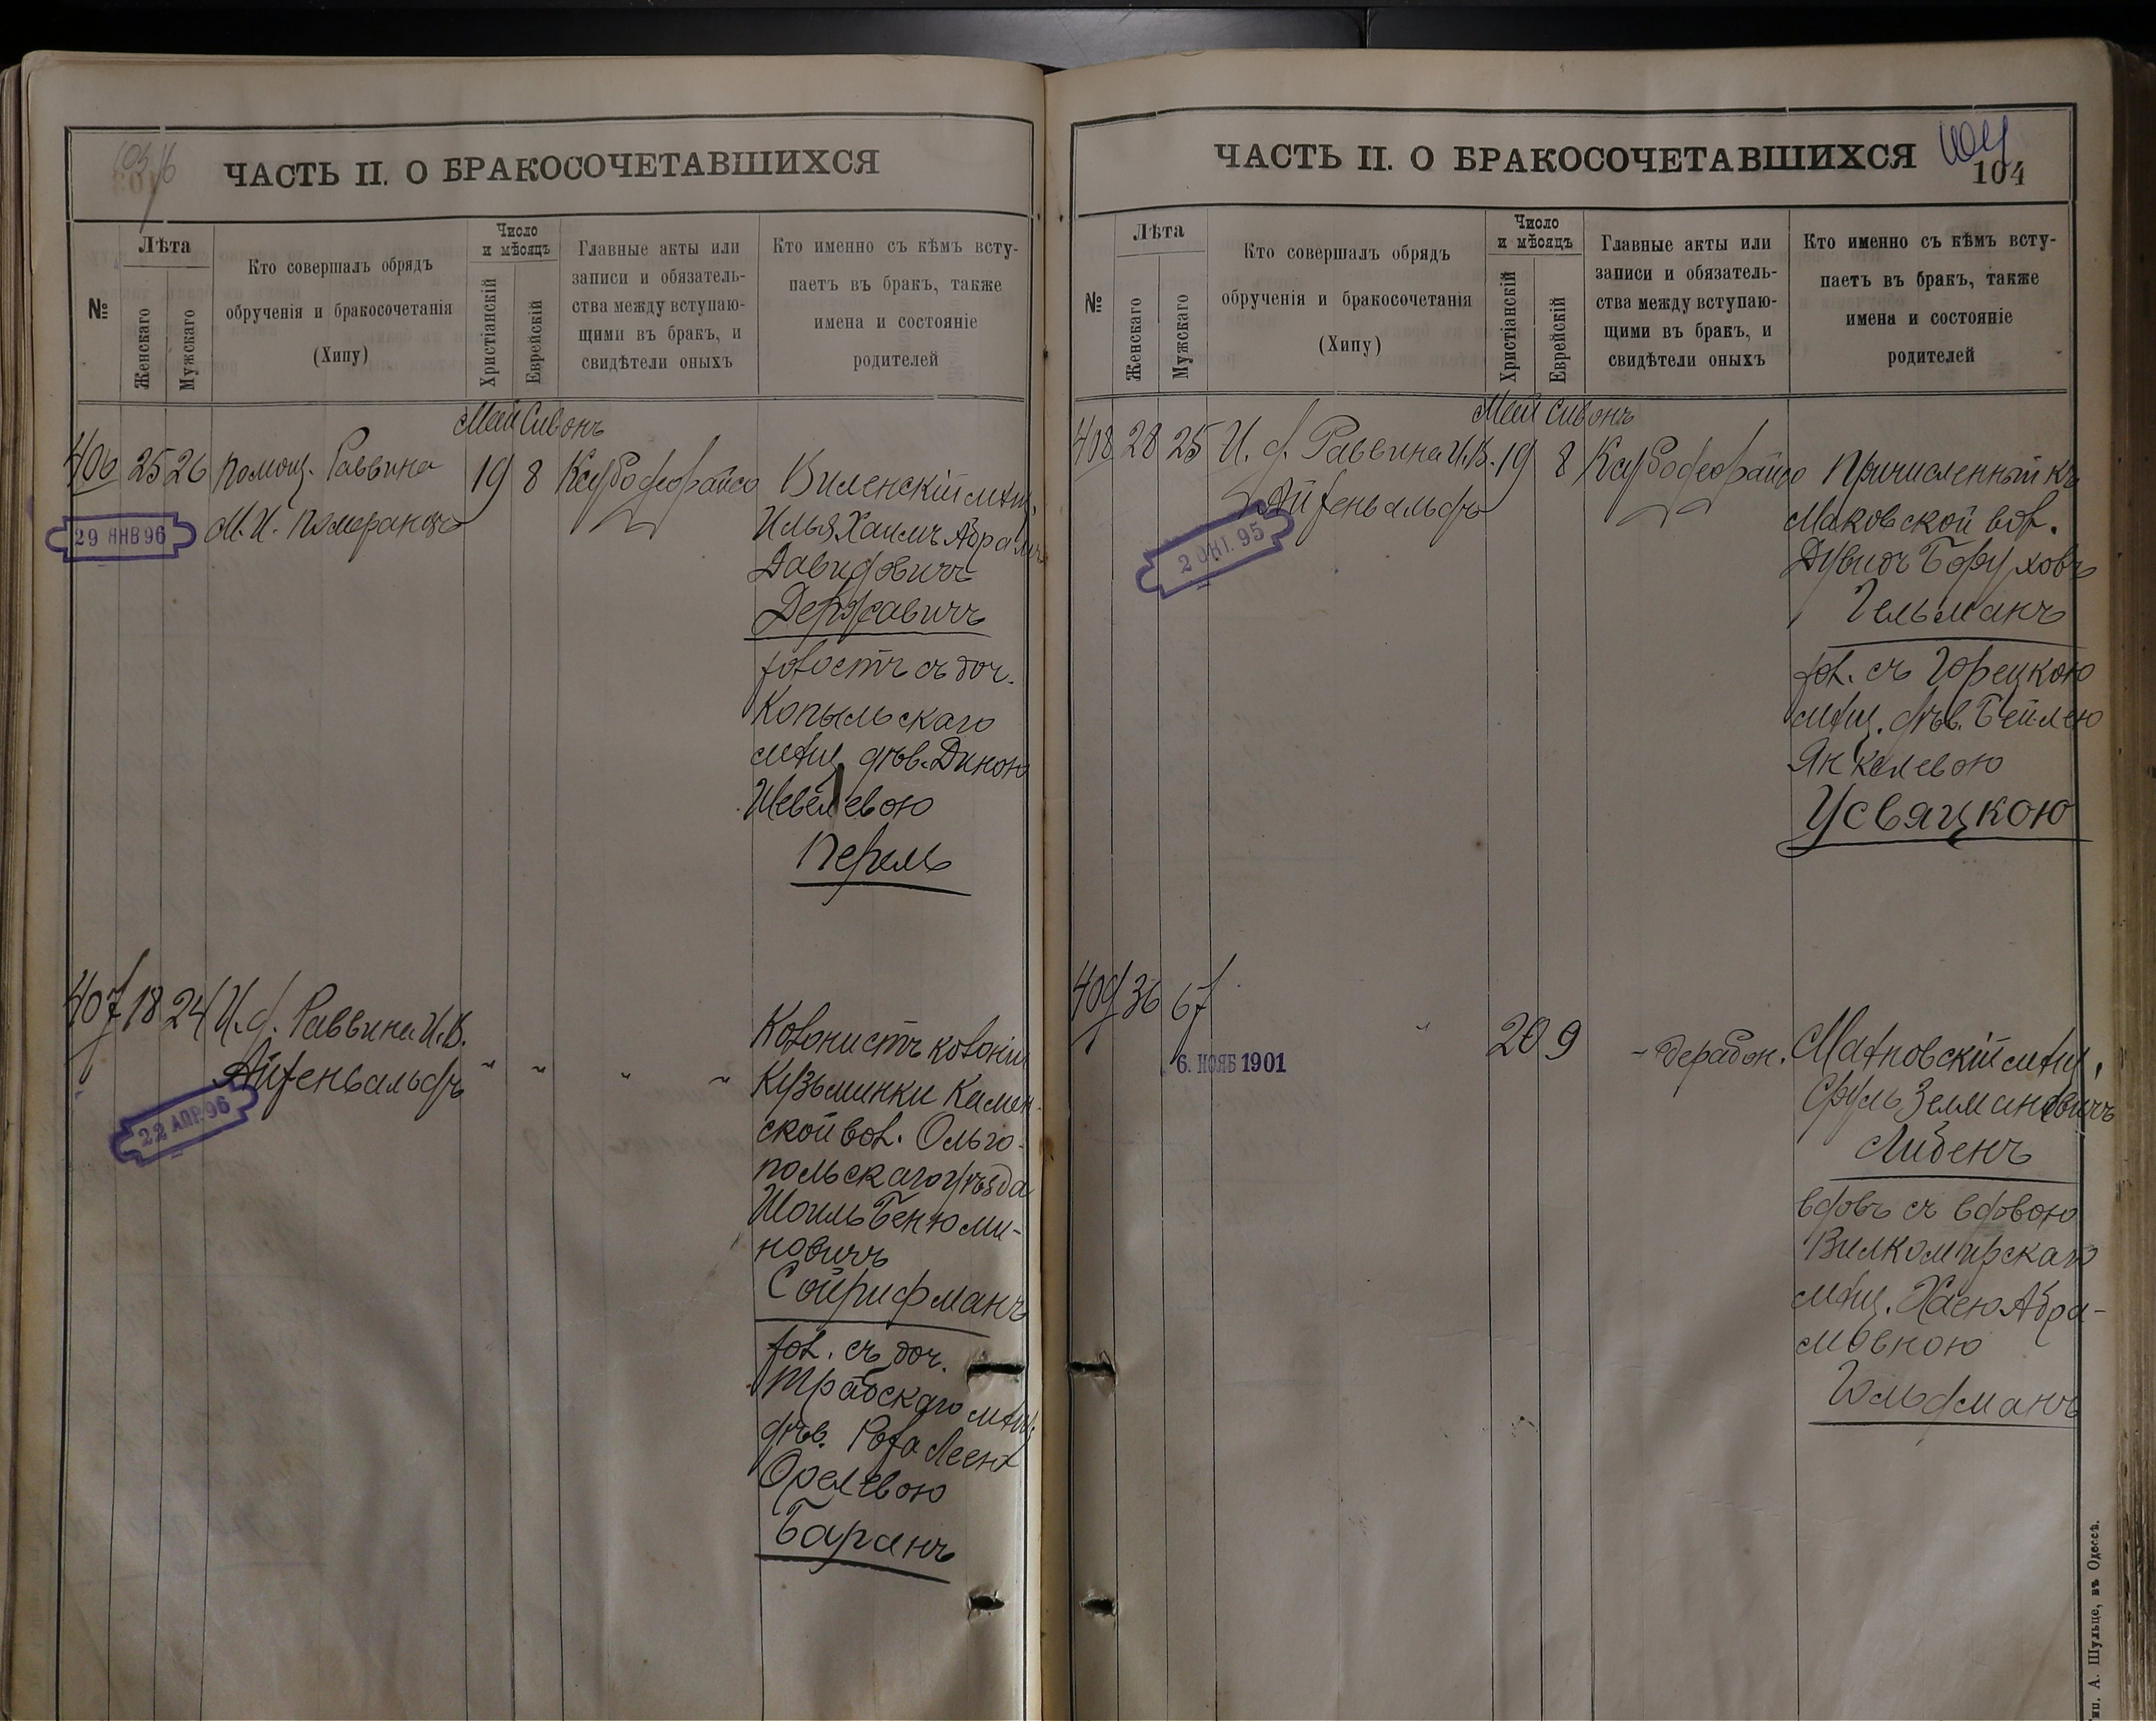 103
ЧАСТЬ II. О БРАКОСОЧЕТАВШИХСЯ
№
Лѣта
Женскаго
Мужскаго
Кто совершалъ обрядъ
обрученія и бракосочетанія
(Хипу)
Число
и мѣсяцъ
Христіанскій
Еврейскій
Главные акты или
записи и обязатель-
ства между вступаю-
щими въ бракъ, и
свидѣтели оныхъ
Кто именно съ кѣмъ всту-
паетъ въ бракъ, также
имена и состояніе
родителей
Май Сивонъ
406 25 26 помощ. Раввина 19 8
М. И. Померанцъ
29 ЯНВ 96
Виленскій мѣщ.
Илья Хаимъ Абрамъ
Давидовичъ
Державичъ
холостъ съ доч.
Копыльскаго
мѣщ. дѣв. Диною
Шевелевою
Перель
407 18 24 И. д. Раввина И. В.
Айзенвальдъ " " " "
22 АПР. 96
Колонистъ колоніи
Кузьминки Камен-
ской вол. Ольго-
польскаго уѣзда
Шоиль Бенюми-
новичъ
Сойрифманъ
хол. съ доч.
Трабскаго мѣщ.
дѣв. Роза Леею
Орелевою
Баранъ
ЧАСТЬ II. О БРАКОСОЧЕТАВШИХСЯ
104
104
№
Лѣта
Женскаго
Мужскаго
Кто совершалъ обрядъ
обрученія и бракосочетанія
(Хипу)
Число
и мѣсяцъ
Христіанскій
Еврейскій
Главные акты или
записи и обязатель-
ства между вступаю-
щими въ бракъ, и
свидѣтели оныхъ
Кто именно съ кѣмъ всту-
паетъ въ бракъ, также
имена и состояніе
родителей
Май Сивонъ
408 28 25 И. д. Раввина И. В. 19 8
Айзенвальдъ
2 ОКТ. 95
Причисленный къ
Маковской вол.
Дувидъ Боруховъ
Гельманъ
хол. съ Горецкою
мѣщ. дѣв. Бейлею
Янкелевою
Усвяцкою
409 36 67 " 20 9
6. НОЯБ 1901
Маяновскій мѣщ.
Сруль Зелмановичъ
Либенъ
вдовъ съ вдовою
Вилкомирскаго
мѣщ. Хаею Абра-
мовною
Гольдманъ
Тип. А. Шульце, въ Одессѣ.